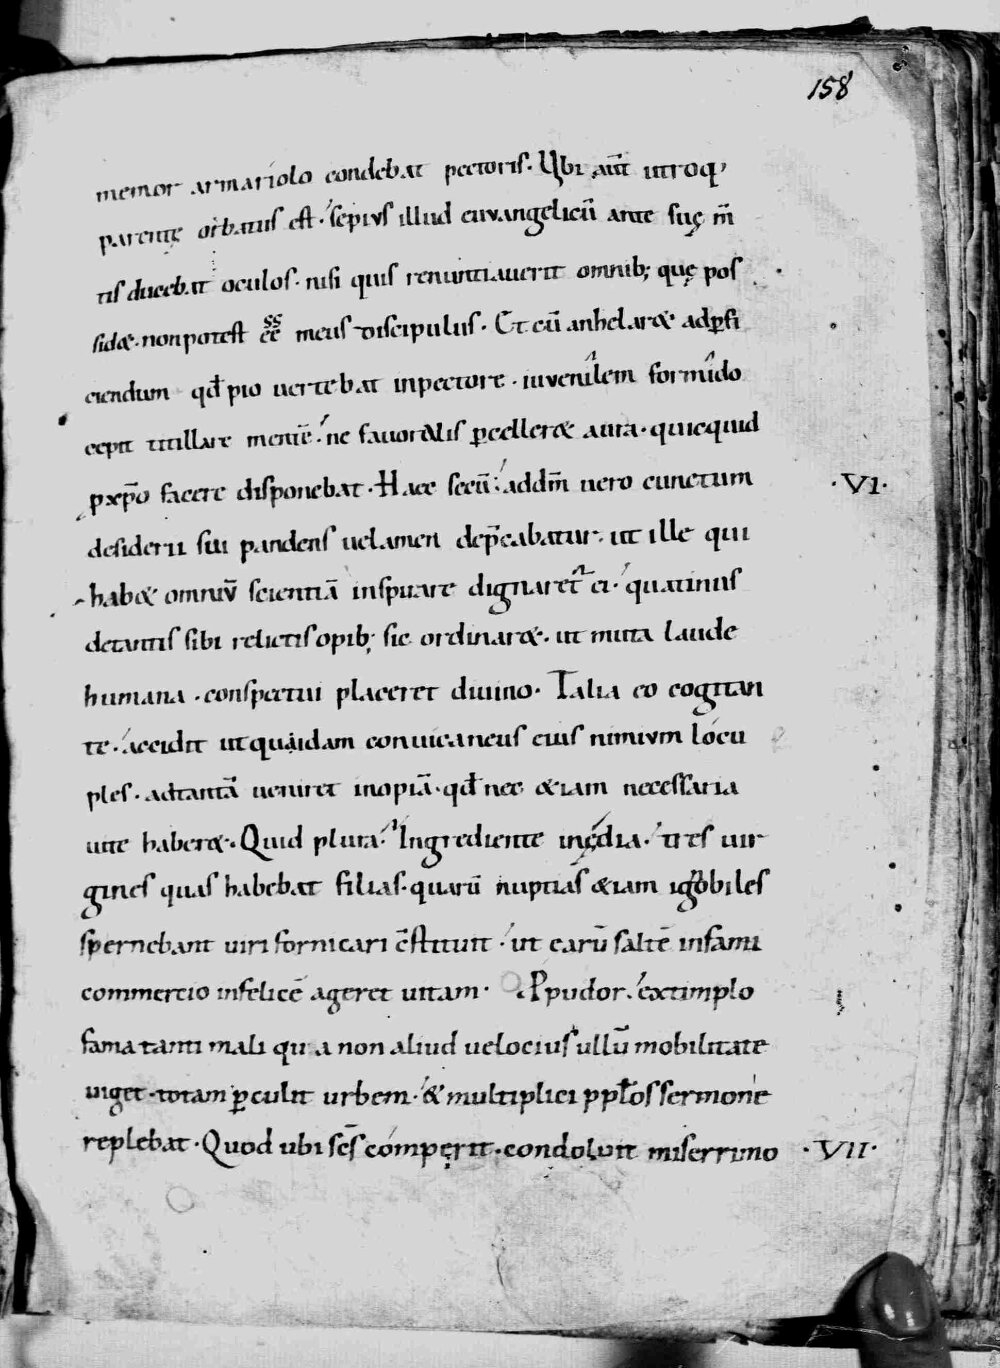 158
memor armariolo condebat pectoris. Ubi aut̄ utroq;
parente orbatus est. sepius illud euvangelicū ante suę m̄
tis ducebat oculos. nisi quis renuntiauerit omnib; quę pos
sid&. non potest ēē meus discipulus. Et cū anhelar& ad ꝑfi
ciendum qd̄ pio uertebat in pectore. iuvenilem formido
cepit titillare mentē. ne fauoralis ꝑceller& aura. quicquid
ꝓ xp̄o facere disponebat. Haec secū. ad dm̄ uero cunctum ·VI·
desiderii sui pandens uelamen dep̄cabatur. ut ille qui
hab& omniū scientiā inspirare dignaret̄ ei. quatinus
de tantis sibi relictis opib; sic ordinar&. ut muta laude
humana. conspectui placeret diuino. Talia eo cogitan
te. accidit ut quidam conuicaneus eius nimium locu
ples. ad tantā ueniret inopiā. qd̄ nec &iam necessaria
uite haber&. Quid plura. Ingrediente inędia. tres uir
gines quas habebat filias. quarū nuptias &iam ignobiles
spernebant uiri fornicari c̄stituit. ut earū saltē infami
commercio infelicē ageret uitam. Ꝓ pudor. extimplo
fama tanti mali qua non aliud uelocius ullū mobilitate
uiget. totam ꝑculit urbem. & multiplici pp̄los sermone
replebat. Quod ubi sc̄s comperit. condoluit miserrimo ·VII·